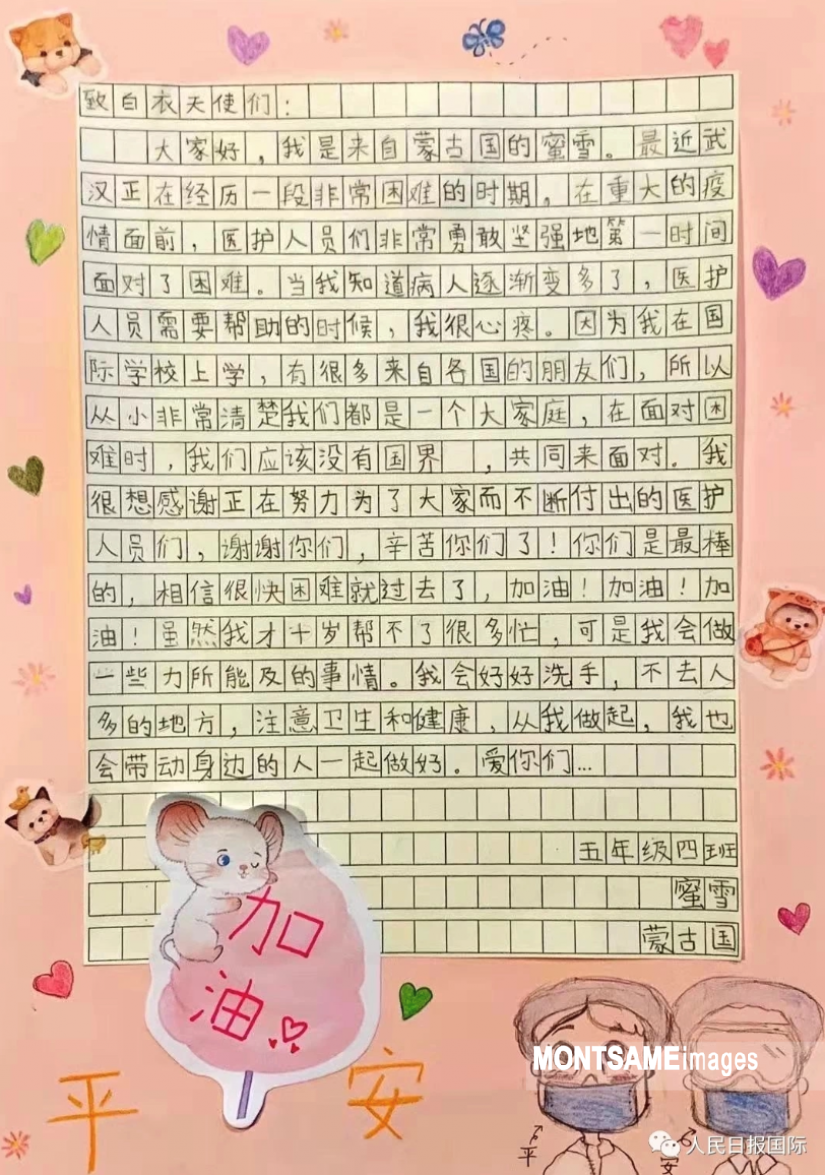 致白衣天使们：
大家好，我是来自蒙古国的蜜雪。最近武
汉正在经历一段非常困难的时期。在重大的疫
情面前，医护人员们非常勇敢坚强地第一时间
面对了困难。当我知道病人逐渐变多了，医护
人员需要帮助的时候，我很心疼。因为我在国
际学校上学，有很多来自各国的朋友们，所以
从小非常清楚我们都是一个大家庭，在面对困
难时，我们应该没有国界，共同来面对。我
很想感谢正在努力为了大家而不断付出的医护
人员们，谢谢你们，辛苦你们了！你们是最棒
的，相信很快困难就过去了，加油！加油！加
油！虽然我才十岁帮不了很多忙，可是我会做
一些力所能及的事情。我会好好洗手，不去人
多的地方，注意卫生和健康，从我做起，我也
会带动身边的人一起做好。爱你们…
五年级四班
蜜雪
蒙古国
加
油
平安
MONTSAMEimages
平
安
人民日报国际